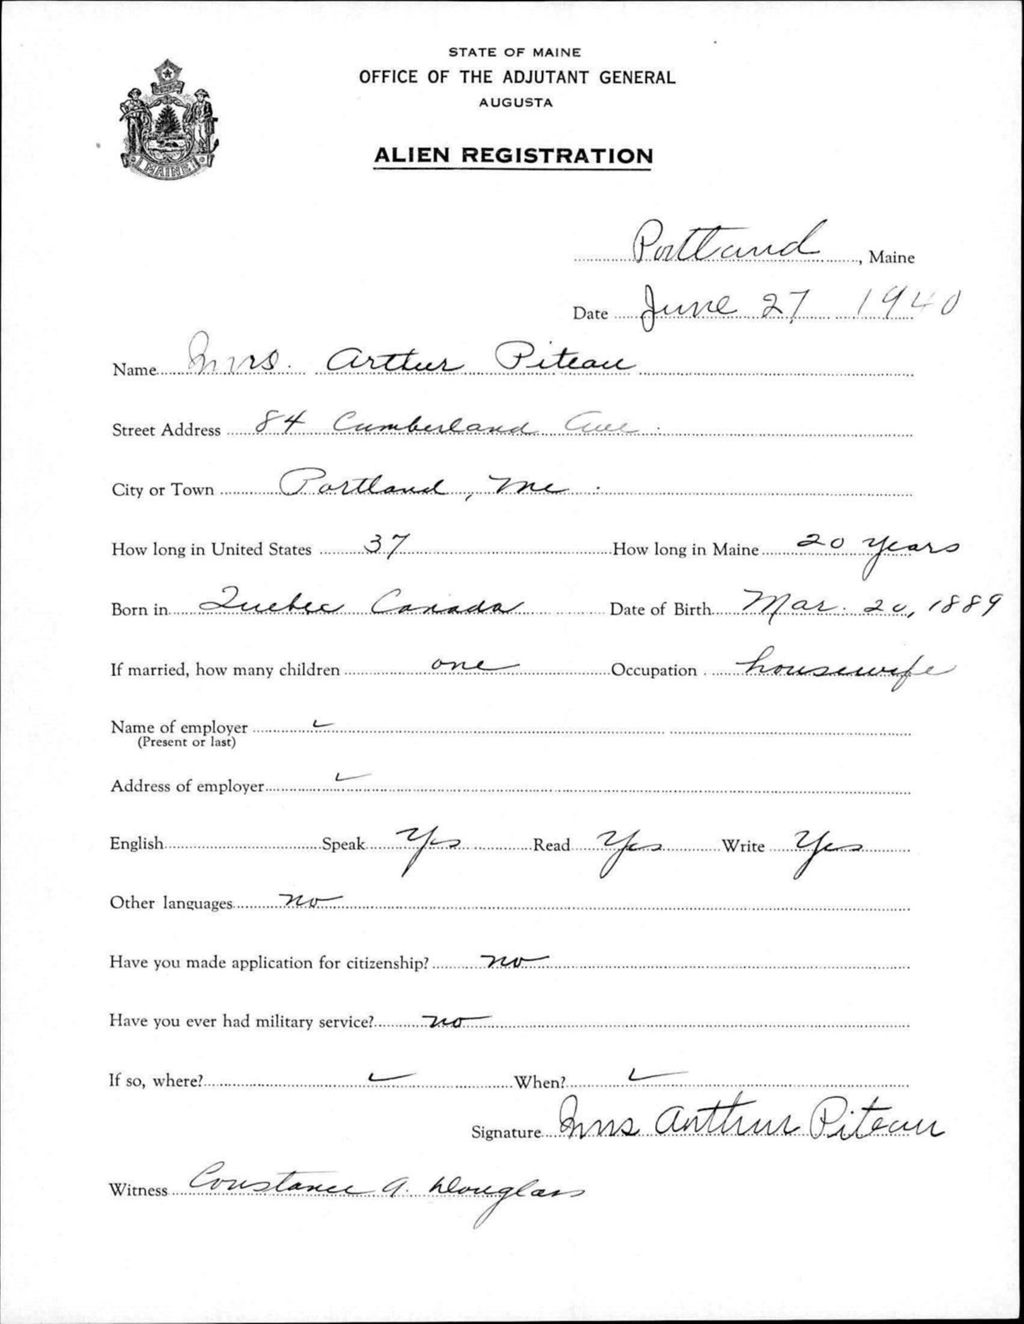 STATE OF MAINE
OFFICE OF THE ADJUTANT GENERAL
AUGUSTA
ALIEN REGISTRATION
MAINE
Portland, Maine
Date June 27 1940
Name Mrs. Arthur Piteau
Street Address 84 Cumberland Ave.
City or Town Portland, Me.
How long in United States 37 How long in Maine 20 years
Born in Quebec Canada Date of Birth Mar. 20, 1889
If married, how many children one Occupation housewife
Name of employer ✓
(Present or last)
Address of employer ✓
English Speak Yes Read Yes Write Yes
Other languages no
Have you made application for citizenship? no
Have you ever had military service? no
If so, where? ✓ When? ✓
Signature Mrs Arthur Piteau
Witness Constance A. Douglass